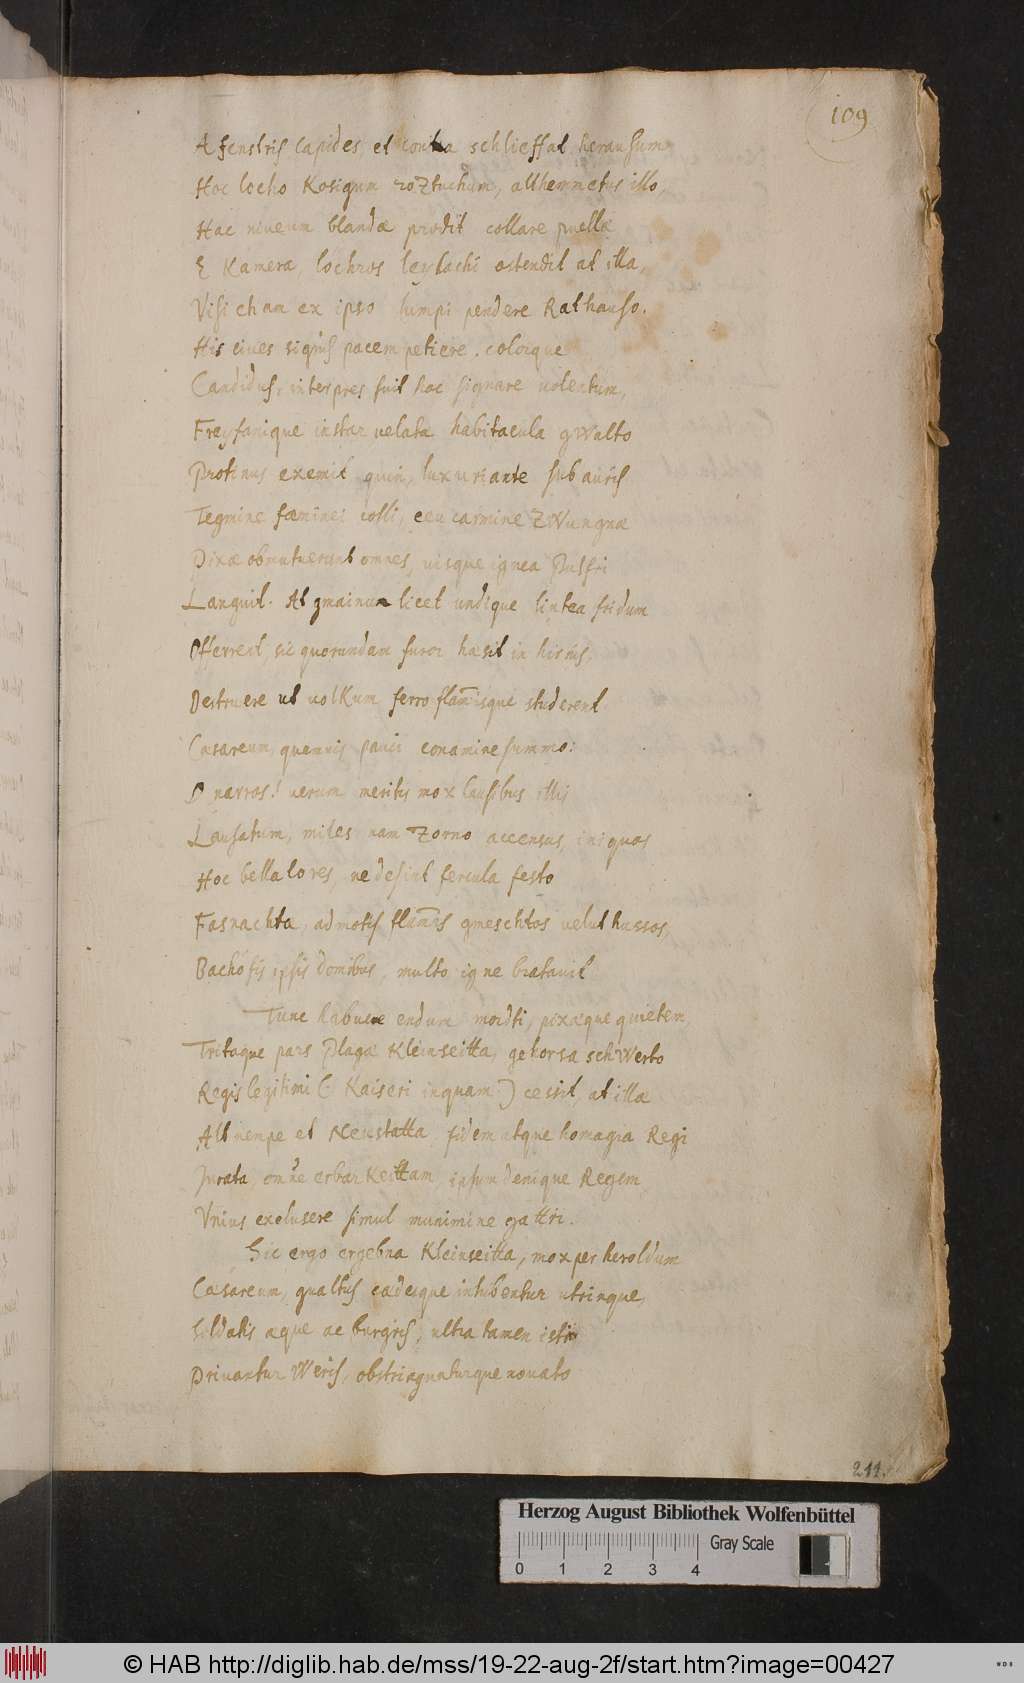 109
A fenstris lapides et contra schlieffat heraussum
Hoc locho Kosigum roZtuchum, allhemmetus illo,
Hac niveum blandæ prodit collare puellæ
E Kamera, lochros leylachi ostendit at illa,
Visi etiam ex ipso lumpi pendere Rathauso.
His cives signis pacem petiere. colorque
Candidus, interpres fuit hac signare volentum,
Freyfanique instar velata habitacula gWalto
Protinus exemit quin, luxuriante sub auris
Tegmine fæminei colli, ceu carmine ZWungnæ
Pixæ obmutuerunt omnes, visque ignea Pulfri
Languit. At gmainum licet undique lintea fridum
Offerrent, sic quorundam furor hæsit in hirnis,
Destruere ut volKum ferro flam̄isque studerent
Cæsareum, quamvis pauci conamine summo:
O narros! verum meritis mox lausibus illis
Lausatum, miles nam Zorno accensus, iniquos
Hoc bellatores, ne desint fercula festo
Fasnachta, admotis flam̄is gmeschtos velut hussos,
Bachofis ipsis domibus, multo igne bratavit
Tunc habuere endum mordti, pixæque quietem,
Tritaque pars Plagæ Kleinseitta, gehorsa schWerbo
Regis legitimi (Kaiseri inquam) cessit, at illæ
Alt nempe et Neustatta, fidem atque homagia Regi
Jurata, omne erbarKeittam, ipsum denique Regem
Unius exclusere simul munimine gattri.
Sic ergo ergebna Kleinseitta, mox per heroldum
Cæsareum, gualtus cædesque inhibentur utrinque,
Soldatis æque ac burgris, ultra tamen isti
Privantur Weris, obstringunturque novato
211.
Herzog August Bibliothek Wolfenbüttel
Gray Scale
0 1 2 3 4
© HAB http://diglib.hab.de/mss/19-22-aug-2f/start.htm?image=00427